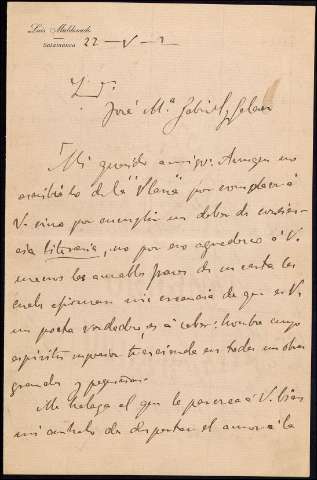 Luis Maldonado
SALAMANCA
22 - V - 
Sr. D.
José M.ª Gabriel y Galan
Mi querido amigo: Aunque no
escribí lo de la "Plana" por complacer á
V. sino por cumplir un deber de
literaria, no por eso agradezco á V.
menos las amables frases de su carta las
cuales afirman mi creencia de que es V.
un poeta verdadero, es á saber: hombre cuyo
espíritu superior trasciende en todas sus obras
grandes y pequeñas.
Me halaga el que le parezca á V. bien
mi conato de despertar el amor á la